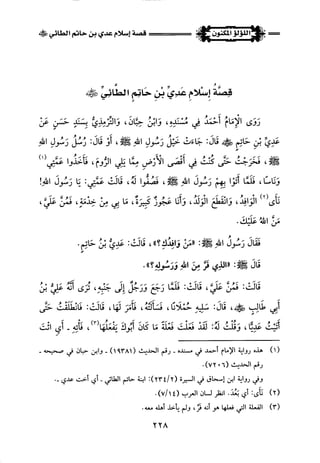 اللؤلؤ المكنون
قصة إسلام عدي بن حاتم الطائي ﷺ
قِصَّةُ إِسْلَامِ عَدِيِّ بْنِ حَاتِمٍ الطَّائِيِّ
رَوَى الْإِمَامُ أَحْمَدُ فِي مُسْنَدِهِ، وَابْنُ حِبَّانَ، وَالتِّرْمِذِيُّ بِسَنَدٍ حَسَنٍ عَنْ
عَدِيِّ بْنِ حَاتِمٍ قَالَ: جَاءَتْ خَيْلُ رَسُولِ اللهِ ﷺ، أَوْ قَالَ: رُسُلُ رَسُولِ اللهِ
ﷺ، فَخَرَجْتُ حَتَّى كُنْتُ فِي أَقْصَى الْأَرْضِ مِمَّا يَلِي الرُّومَ، فَأَخَذُوا عَمَّتِي(١)
وَنَاسًا، فَلَمَّا أَتَوْا بِهِمْ رَسُولَ اللهِ ﷺ، فَصَفُّوا لَهُ، قَالَتْ عَمَّتِي: يَا رَسُولَ اللهِ!
نَأَى(٢) الْوَافِدُ، وَانْقَطَعَ الْوَلَدُ، وَأَنَا عَجُوزٌ كَبِيرَةٌ، مَا بِي مِنْ خِدْمَةٍ، فَمُنَّ عَلَيَّ،
مَنَّ اللهُ عَلَيْكَ.
فَقَالَ رَسُولُ اللهِ ﷺ: «مَنْ وَافِدُكِ؟»، قَالَتْ: عَدِيُّ بْنُ حَاتِمٍ.
قَالَ ﷺ: «الَّذِي فَرَّ مِنَ اللهِ وَرَسُولِهِ؟».
قَالَتْ: فَمُنَّ عَلَيَّ، قَالَتْ: فَلَمَّا رَجَعَ وَرَجُلٌ إِلَى جَنْبِهِ، تُرَى أَنَّهُ عَلِيُّ بْنُ
أَبِي طَالِبٍ، قَالَ: سَلِيهِ حُمْلَانًا، فَسَأَلَتْهُ، فَأَمَرَ لَهَا، قَالَتْ: فَانْطَلَقْتُ حَتَّى
أَتَيْتُ عَدِيًّا، وَقُلْتُ لَهُ: لَقَدْ فَعَلْتَ فَعْلَةً مَا كَانَ أَبُوكَ يَفْعَلُهَا(٣)، فَأْتِهِ، أَيِ ائْتِ
(١) هذه رواية الإمام أحمد في مسنده ـ رقم الحديث (١٩٣٨١) ـ وابن حبان في صحيحه ـ
رقم الحديث (٧٢٠٦).
وفي رواية ابن إسحاق في السيرة (٢٣٤/٢): ابنة حاتم الطائي ـ أي أخت عدي ـ.
(٢) نأى: أي بَعُدَ. انظر لسان العرب (٧/١٤).
(٣) الفعلة التي فعلها هو أنه فرّ، ولم يأخذ أهله معه.
٢٢٨